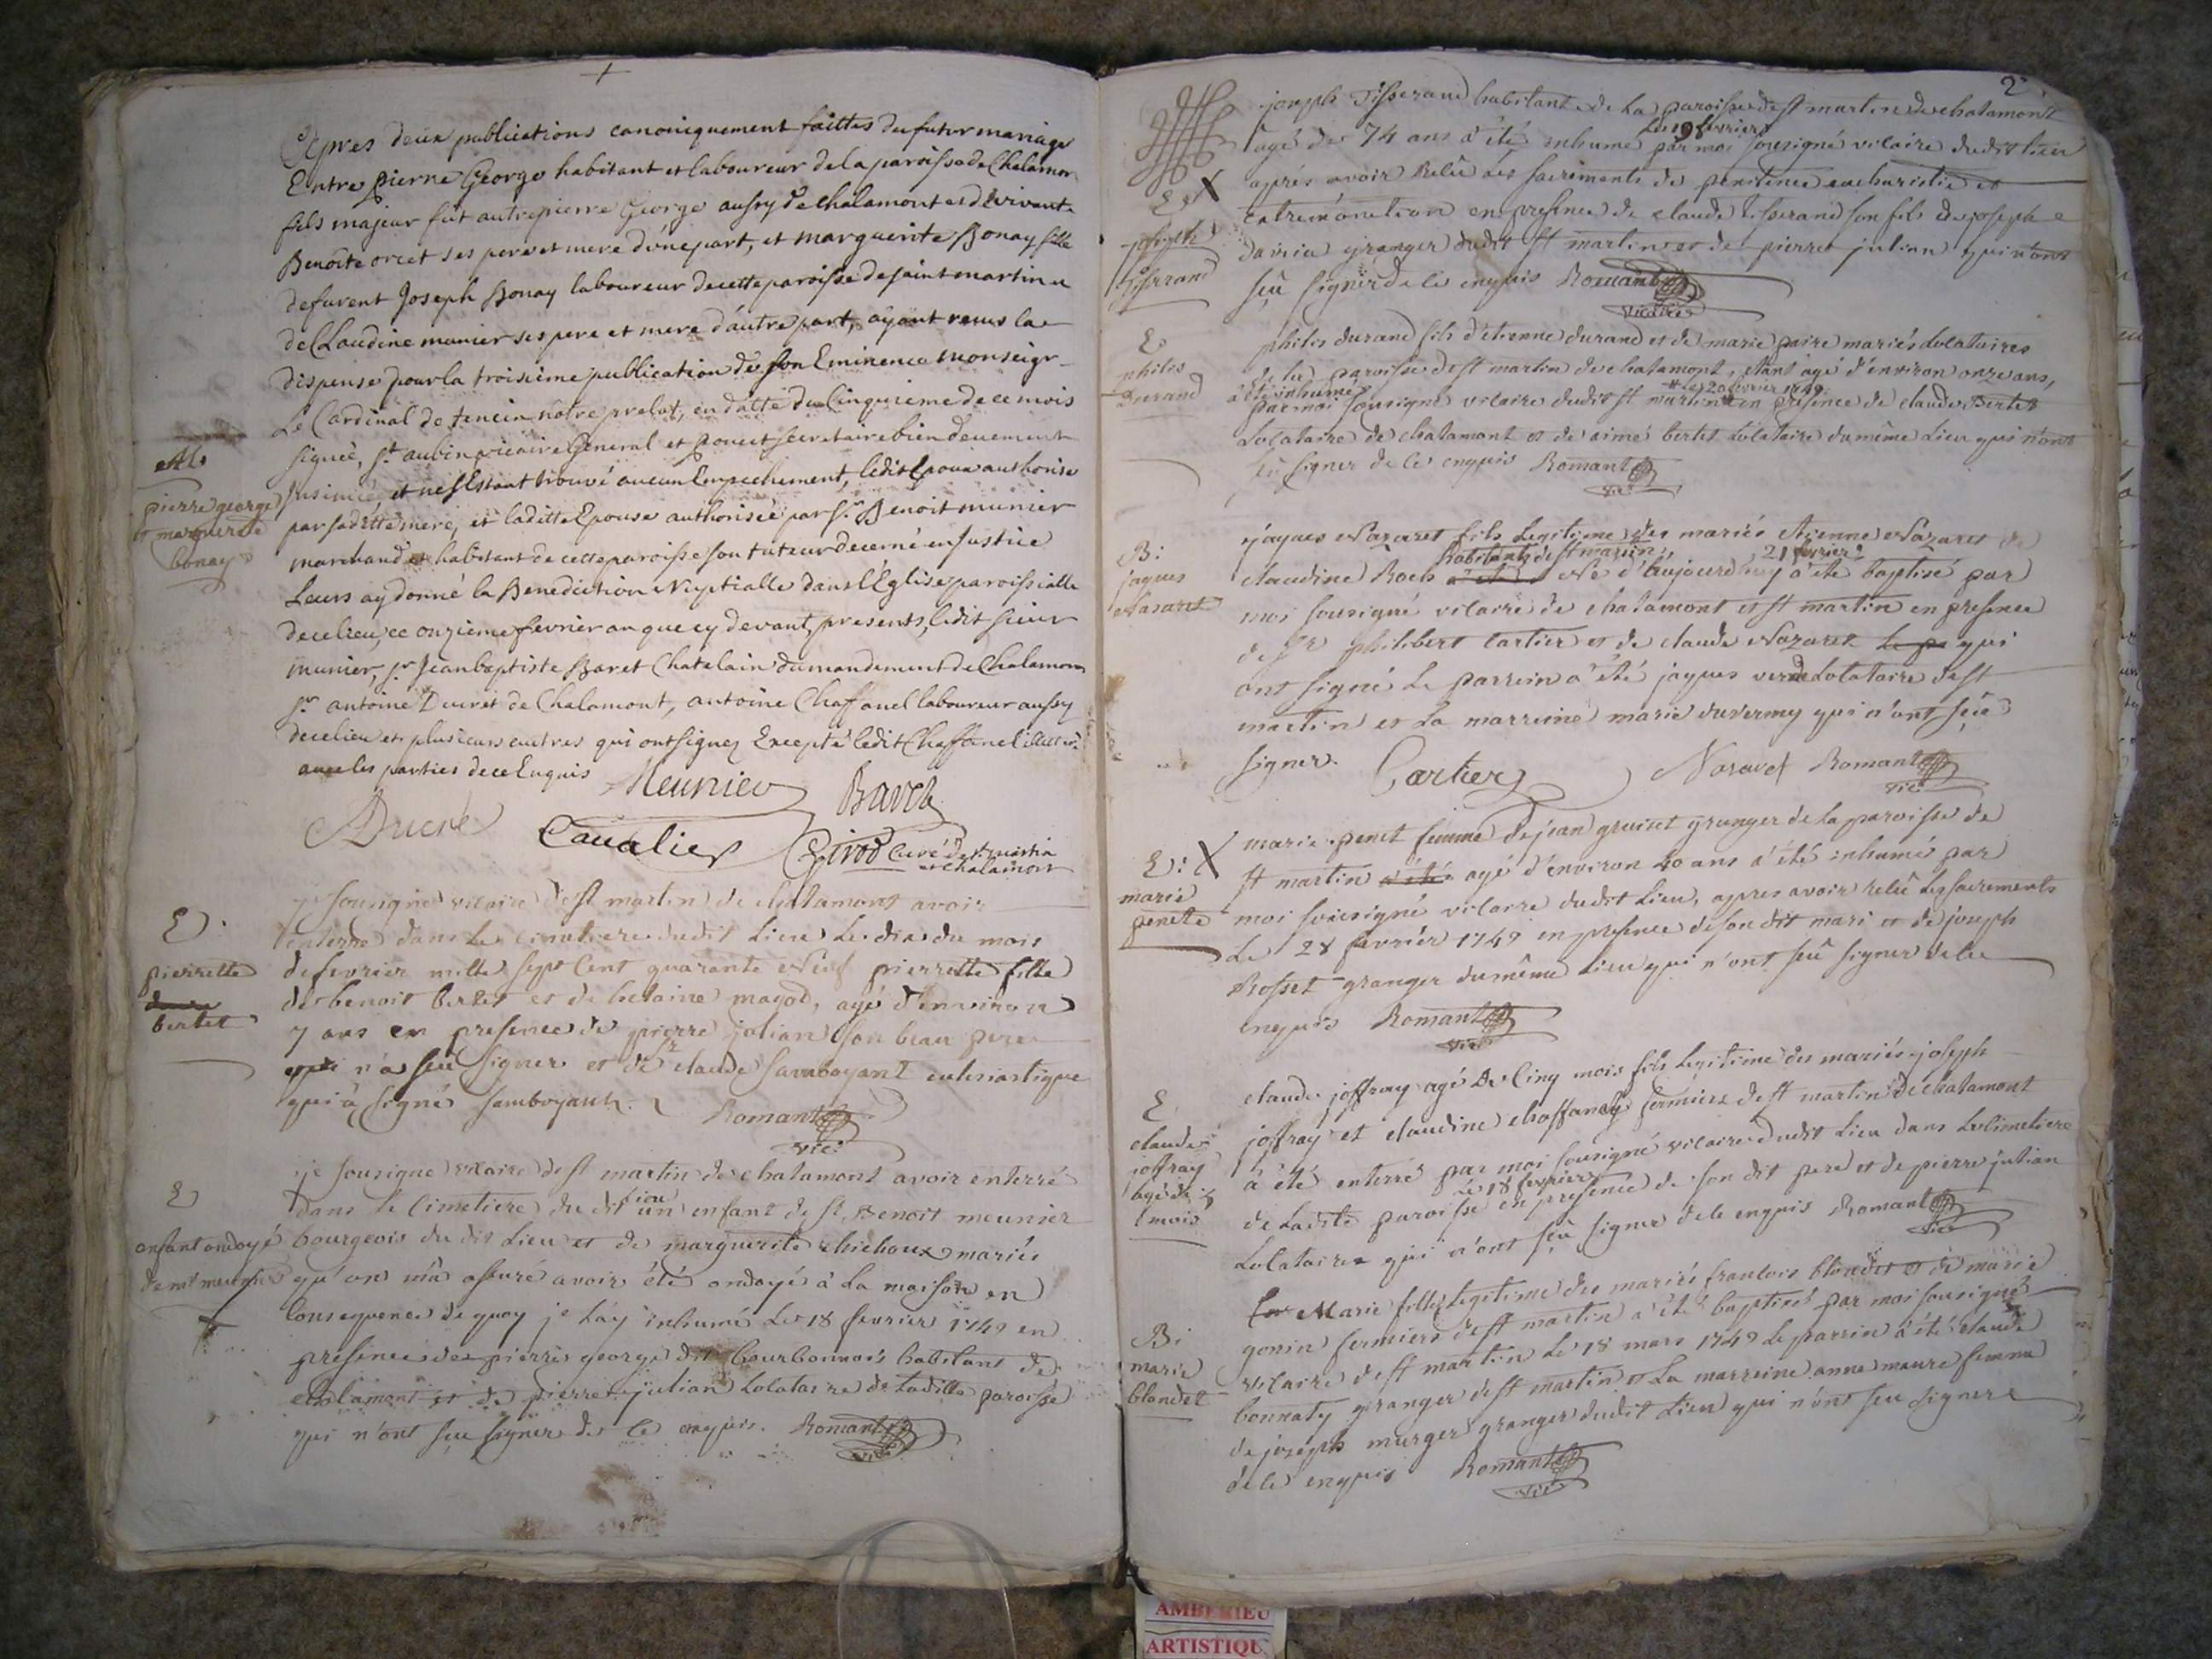 +
Apres deux publications canoniquement faittes du futur mariage
Entre pierre George habitant et laboureur de la paroisse de Chalamon
fils majeur fut autre pierre George aussy de chalamont et de vivante
Benoite orcet ses pere et mere d'une part, et marguerite Bonay fille
defurent Joseph Bonay laboureur de cette paroisse de saint martin
de Claudine munier ses pere et mere d'autre part, ayant reçus la
dispense pour la troisième publication de son Eminence Monseigr
Le Cardinal de tencin notre prelat, en datte du Cinquieme de ce mois
signée, st aubin vicaire General et poncet secretaire bien deuement
et ne s'Estant trouvé aucun Empechement, ledit Epoux authorise
par sa ditte mere, et la ditte Epouse authorisée par sr Benoit munier
marchand et habitant de cette paroisse son tuteur decerné en Justice
Leurs ay donné la Benediction Nuptialle dans l'Église paroissialle
de ce lieu, ce onzieme fevrier an que cy devant, presents, ledit sieur
munier, sr Jean baptiste Baret Chatelain du mandement de Chalamon
sr antoine Ducret de Chalamont, antoine Chaffanel laboureur aussy
de ce lieu et plusieurs autres qui ont signez Excepté ledit Chaffanel
avec les parties de ce Enquis Meunier Baret
Ducré Cavalier Girod Curé de st martin
et chalamont
M
pierre george
et marguerite
bonay
E
pierrette
bertet
je sousigné vicaire de st martin de chalamont avoir
enterré dans le cimetiere dudit Lieu Le dix du mois
de fevrier mille sept Cent quarante Neuf pierrette fille
de benoit bertet et de helaine magod, agé d'environ
7 ans en presence de pierre julian son beau pere
qui n'a seu signer et de sr claude Savaboyant eclesiastique
qui a signé Romant
vic:
E
enfant ondoyé
de mr meunier
je sousigné vicaire de st martin de chalamont avoir enterré
dans le Cimetiere du dit lieu un enfant de sr Benoit meunier
bourgeois du dit Lieu et de marguerite chichoux mariés
qu'on m'a assuré avoir été ondoyé à La maison en
Consequence de quoy je L'ay inhumé Le 18 fevrier 1749 en
presence de pierre george dit bourbonnois habitant de
chalamont et de pierre julian Locataire de Laditte paroisse
qui n'ont seu signer de ce enquis. Romant
vic:
2
joseph Tisserand habitant de La paroisse de st martin de chalamont
agé de 74 ans a été inhumé le 19 fevrier par moi sousigné vicaire dudit lieu
aprés avoir Reçû Les sacrements de penitence eucharistie et
extremonction en presence de claude tisserand son fils de joseph
granger dudit st martin et de pierre julian qui n'ont
sçû signer de ce enquis Romant
vicaire
E X
joseph
Tisserand
E
philis
Durand
philis durand fils d'etienne durand et de marie paire mariés Locataires
de la paroisse de st martin de chalamont, etant agé d'environ onze ans,
a été inhumé le 20 fevrier 1749
par moi sousigné vicaire dudit st martin en presence de claude Bertet
Locataire de chalamont et de aimé bertet Locataire du même Lieu qui n'ont
sû signer de ce enquis Romant
vic:
B:
jaques
Nasaret
jaques Nazaret fils Legitime des mariés Etienne Nazaret de
claudine Roch habitants de st martin Né d'aujourd'huy 21 fevrier a été baptisé par
moi sousigné vicaire de chalamont et st martin en presence
de sr philibert Cartier et de claude Nazaret le p qui
ont signé Le parrein a été jaques verd Locataire de st
martin et La marreine marie duvermy qui n'ont sçû
signer. Cartier Nasaret Romant
vic:
E: X
marie
penete
marie penet femme de jean gruiset granger de La paroisse de
st martin a été agé d'environ 40 ans a été inhumé par
moi sousigné vicaire dudit Lieu, apres avoir reçû Les sacrements
Le 28 fevrier 1749 en presence de son dit mari et de joseph
Rosset granger du même Lieu qui n'ont seû signer de ce
enquis Romant
vic:
E
claude
joffray
agé de 5
mois
claude joffray agé De Cinq mois fils Legitime des mariés joseph
joffray et claudine chaffanel fermiers de st martin De chalamont
a été enterré par moi sousigné vicaire dudit Lieu dans Le Cimetiere
de Ladite paroisse le 18 fevrier en presence de son dit pere et de pierre julian
Locataire qui n'ont sçû signer de ce enquis Romant
vic:
B:
marie
blondet
Marie fille Legitime des mariés francois blondet et de marie
gonin fermiers de st martin a été baptisé par moi sousigné
vicaire de st martin Le 18 mars 1749 Le parrin a été claude
bonnaty granger de st martin et La marreine anne maure femme
de joseph murger granger dudit Lieu qui n'ont seu signer
de ce enquis Romant
vic:
AMBERIEU
ARTISTIQU